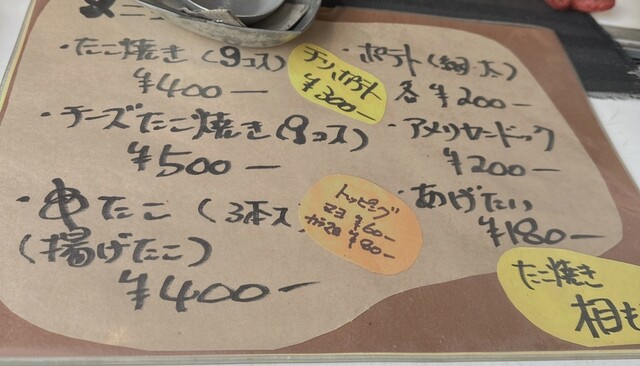 メニュー
・たこ焼き(9コ入)
¥400ー
チリポテト
¥300ー
・ポテト(細・太)
各 ¥200ー
・チーズたこ焼き(9コ入)
¥500ー
・アメリカンドック
¥200ー
・串たこ(3本入
(揚げたこ)
¥400ー
トッピング
マヨ ¥60ー
¥80ー
・あげたい
¥180ー
たこ焼き
相も